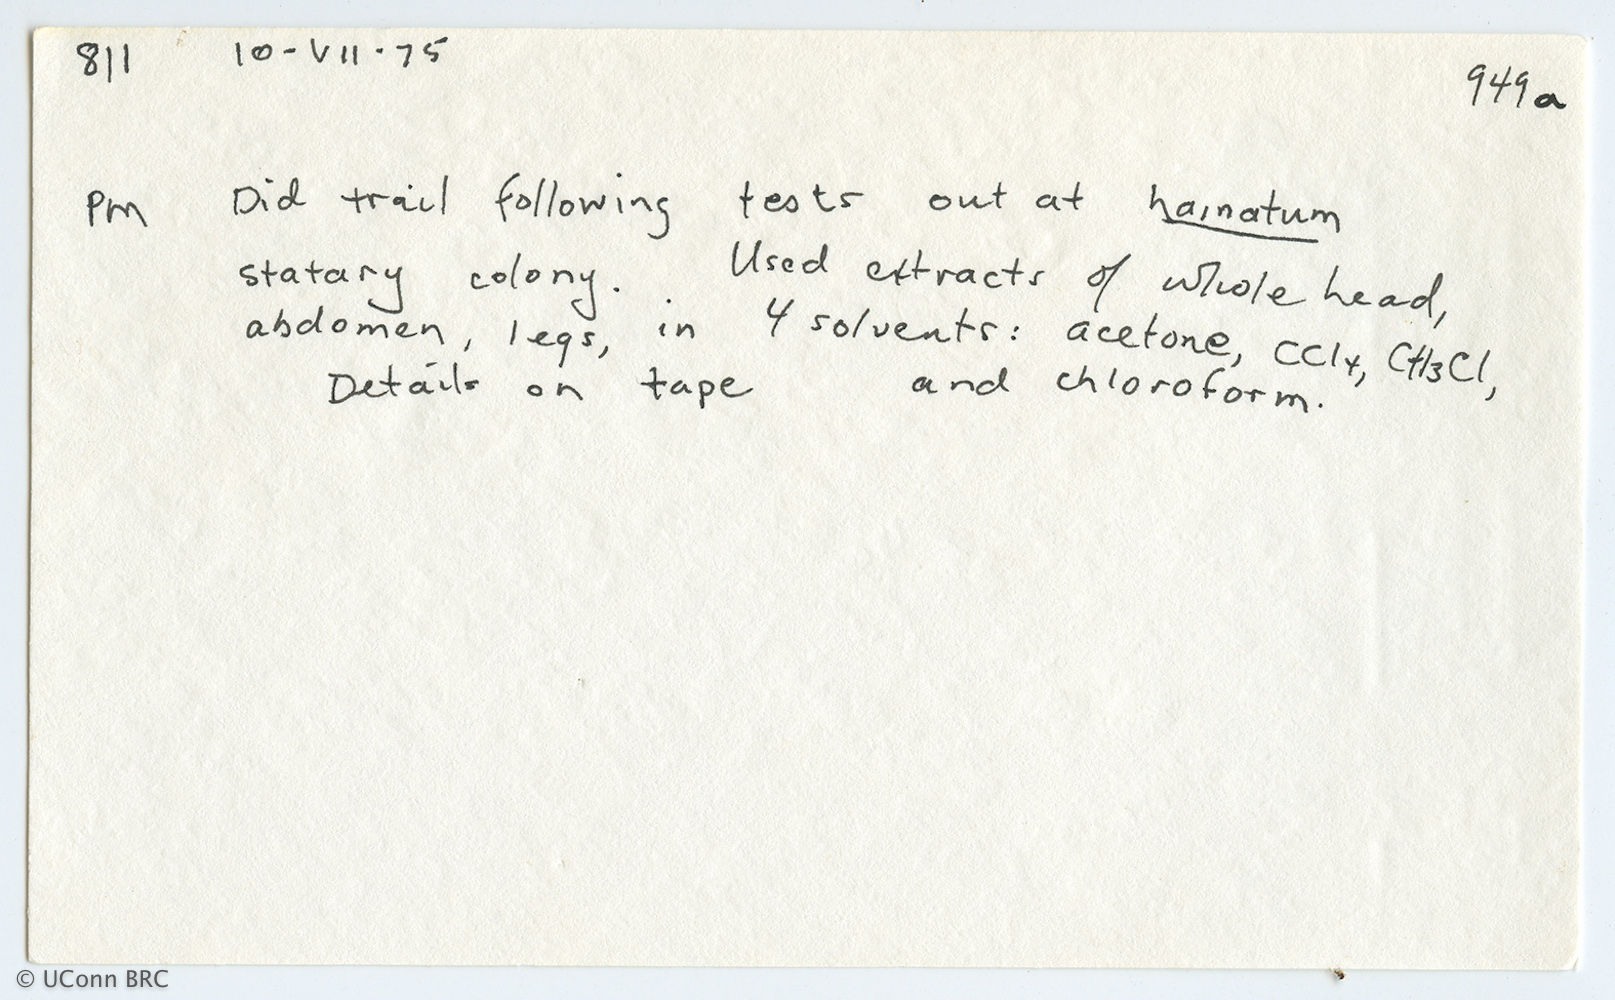 811 10-VII-75 949a
PM Did trail following tests out at hamatum
statary colony. Used extracts of whole head,
abdomen, legs, in 4 solvents: acetone, CCl4, CH3Cl,
Details on tape and chloroform.
© UConn BRC